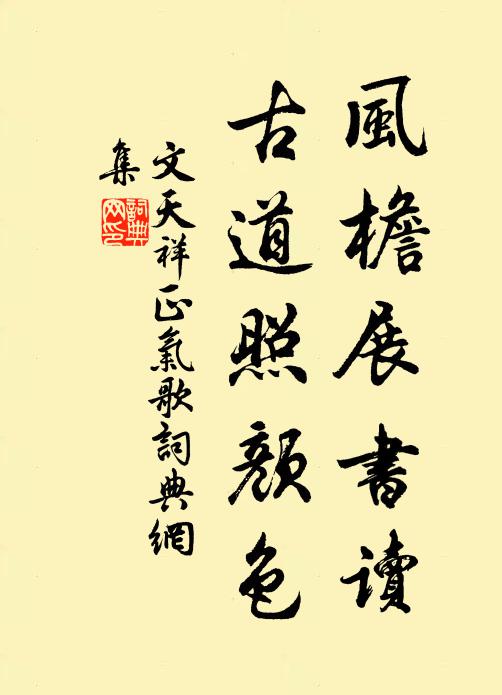 風檐展書讀
古道照顏色
文天祥正氣歌詞典網
集
詞典
网印